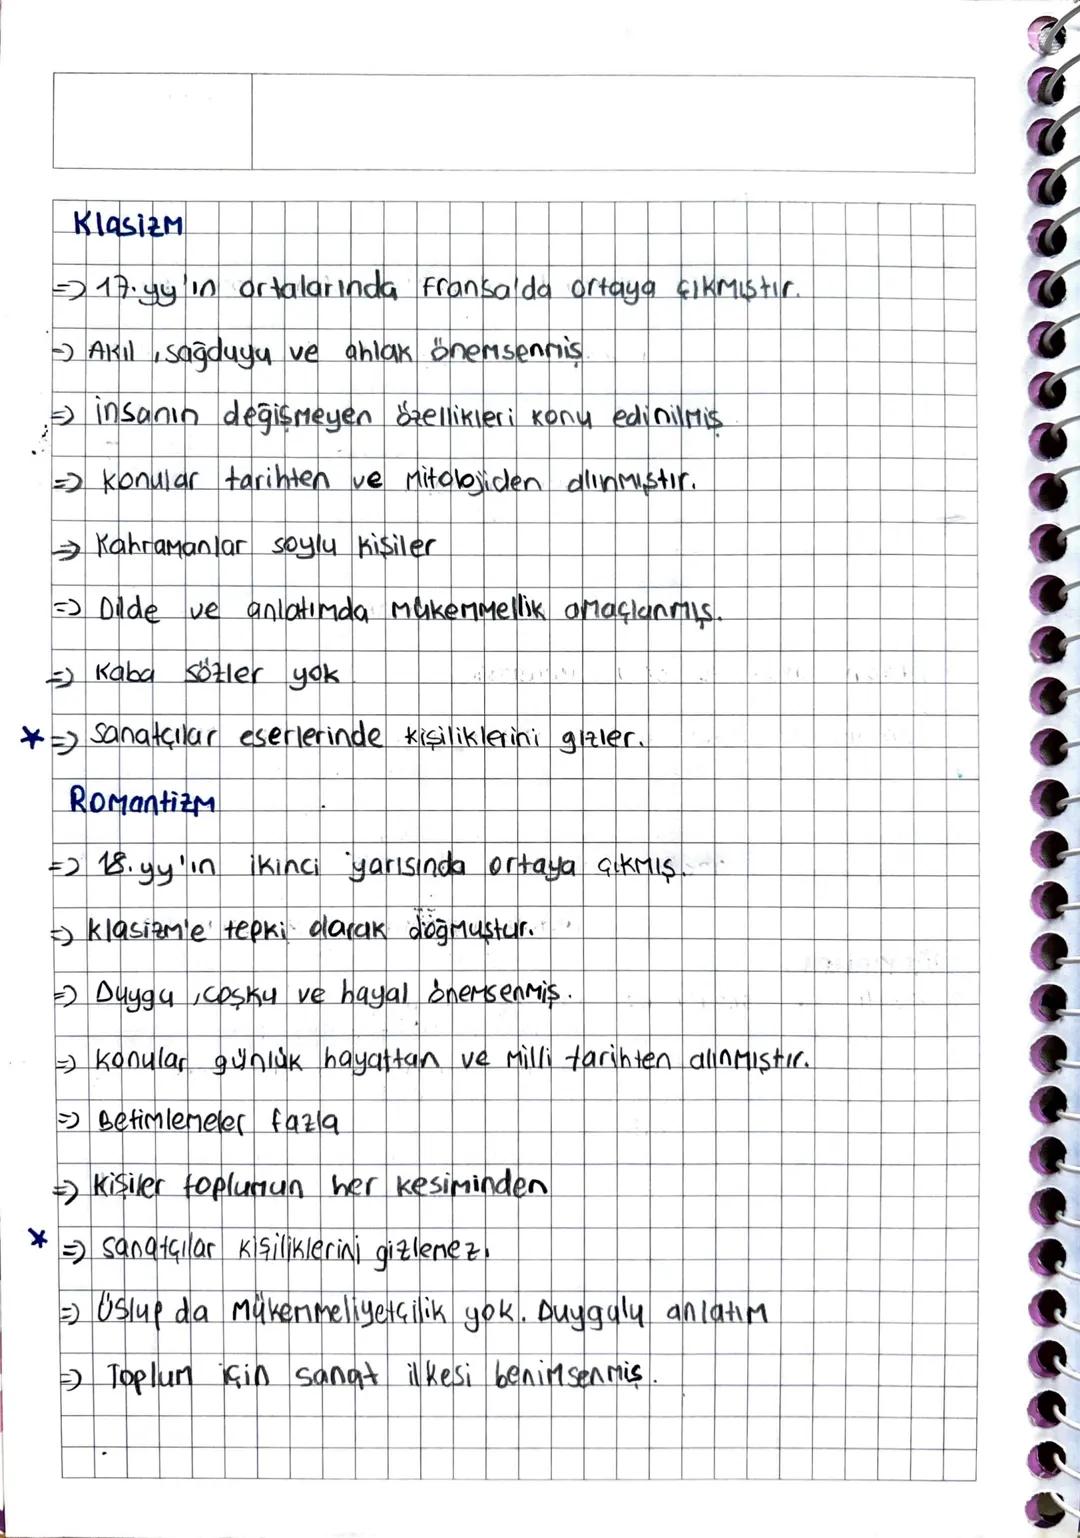 Klasizm
=> 17.yy'ın ortalarında Fransa'da ortaya çıkmıştır.
=> Akıl, sağduyu ve ahlak önemsenmiş
=> insanın değişmeyen özellikleri konu edinilmiş
=> konular tarihten ve mitolojiden alınmıştır.
=> Kahramanlar soylu kişiler
=> Dilde ve anlatımda mükemmellik amaçlanmış.
=> Kaba sözler yok
* => Sanatçılar eserlerinde kişiliklerini gizler.
Romantizm
=> 18.yy'ın ikinci yarısında ortaya çıkmış.
=> klasizm'e tepki olarak doğmuştur.
=> Duygu, coşku ve hayal önemsenmiş.
=> Konular günlük hayattan ve milli tarihten alınmıştır.
=> Betimlemeler fazla
=> Kişiler toplumun her kesiminden
* => Sanatçılar kişiliklerini gizlemez.
=> Üslup da mükemmeliyetçilik yok. Duygulu anlatım
=> Toplum için sanat ilkesi benimsenmiş.